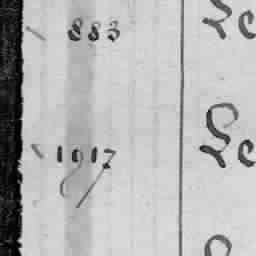 883 Le
1917 Le